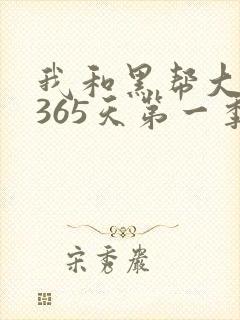 我和黑帮大
365天第一季
宋秀岩